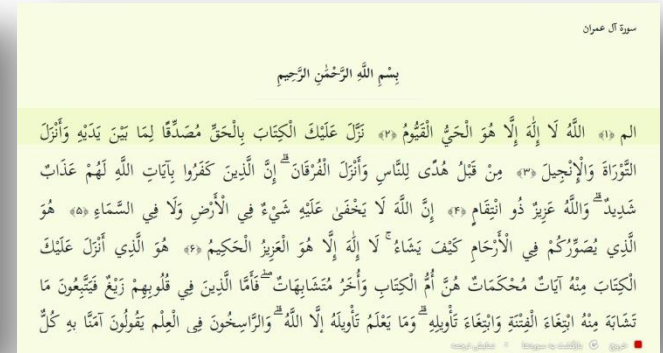 سورة آل عمران
بِسْمِ اللَّهِ الرَّحْمَٰنِ الرَّحِيمِ
الم ﴿۱﴾ اللَّهُ لَا إِلَٰهَ إِلَّا هُوَ الْحَيُّ الْقَيُّومُ ﴿۲﴾ نَزَّلَ عَلَيْكَ الْكِتَابَ بِالْحَقِّ مُصَدِّقًا لِمَا بَيْنَ يَدَيْهِ وَأَنْزَلَ
التَّوْرَاةَ وَالْإِنْجِيلَ ﴿۳﴾ مِنْ قَبْلُ هُدًى لِلنَّاسِ وَأَنْزَلَ الْفُرْقَانَ ۗ إِنَّ الَّذِينَ كَفَرُوا بِآيَاتِ اللَّهِ لَهُمْ عَذَابٌ
شَدِيدٌ ۗ وَاللَّهُ عَزِيزٌ ذُو انْتِقَامٍ ﴿۴﴾ إِنَّ اللَّهَ لَا يَخْفَىٰ عَلَيْهِ شَيْءٌ فِي الْأَرْضِ وَلَا فِي السَّمَاءِ ﴿۵﴾ هُوَ
الَّذِي يُصَوِّرُكُمْ فِي الْأَرْحَامِ كَيْفَ يَشَاءُ ۚ لَا إِلَٰهَ إِلَّا هُوَ الْعَزِيزُ الْحَكِيمُ ﴿۶﴾ هُوَ الَّذِي أَنْزَلَ عَلَيْكَ
الْكِتَابَ مِنْهُ آيَاتٌ مُحْكَمَاتٌ هُنَّ أُمُّ الْكِتَابِ وَأُخَرُ مُتَشَابِهَاتٌ ۖ فَأَمَّا الَّذِينَ فِي قُلُوبِهِمْ زَيْغٌ فَيَتَّبِعُونَ مَا
تَشَابَهَ مِنْهُ ابْتِغَاءَ الْفِتْنَةِ وَابْتِغَاءَ تَأْوِيلِهِ ۗ وَمَا يَعْلَمُ تَأْوِيلَهُ إِلَّا اللَّهُ ۗ وَالرَّاسِخُونَ فِي الْعِلْمِ يَقُولُونَ آمَنَّا بِهِ كُلٌّ
خروج بازگشت به سوره‌ها نمایش ترجمه